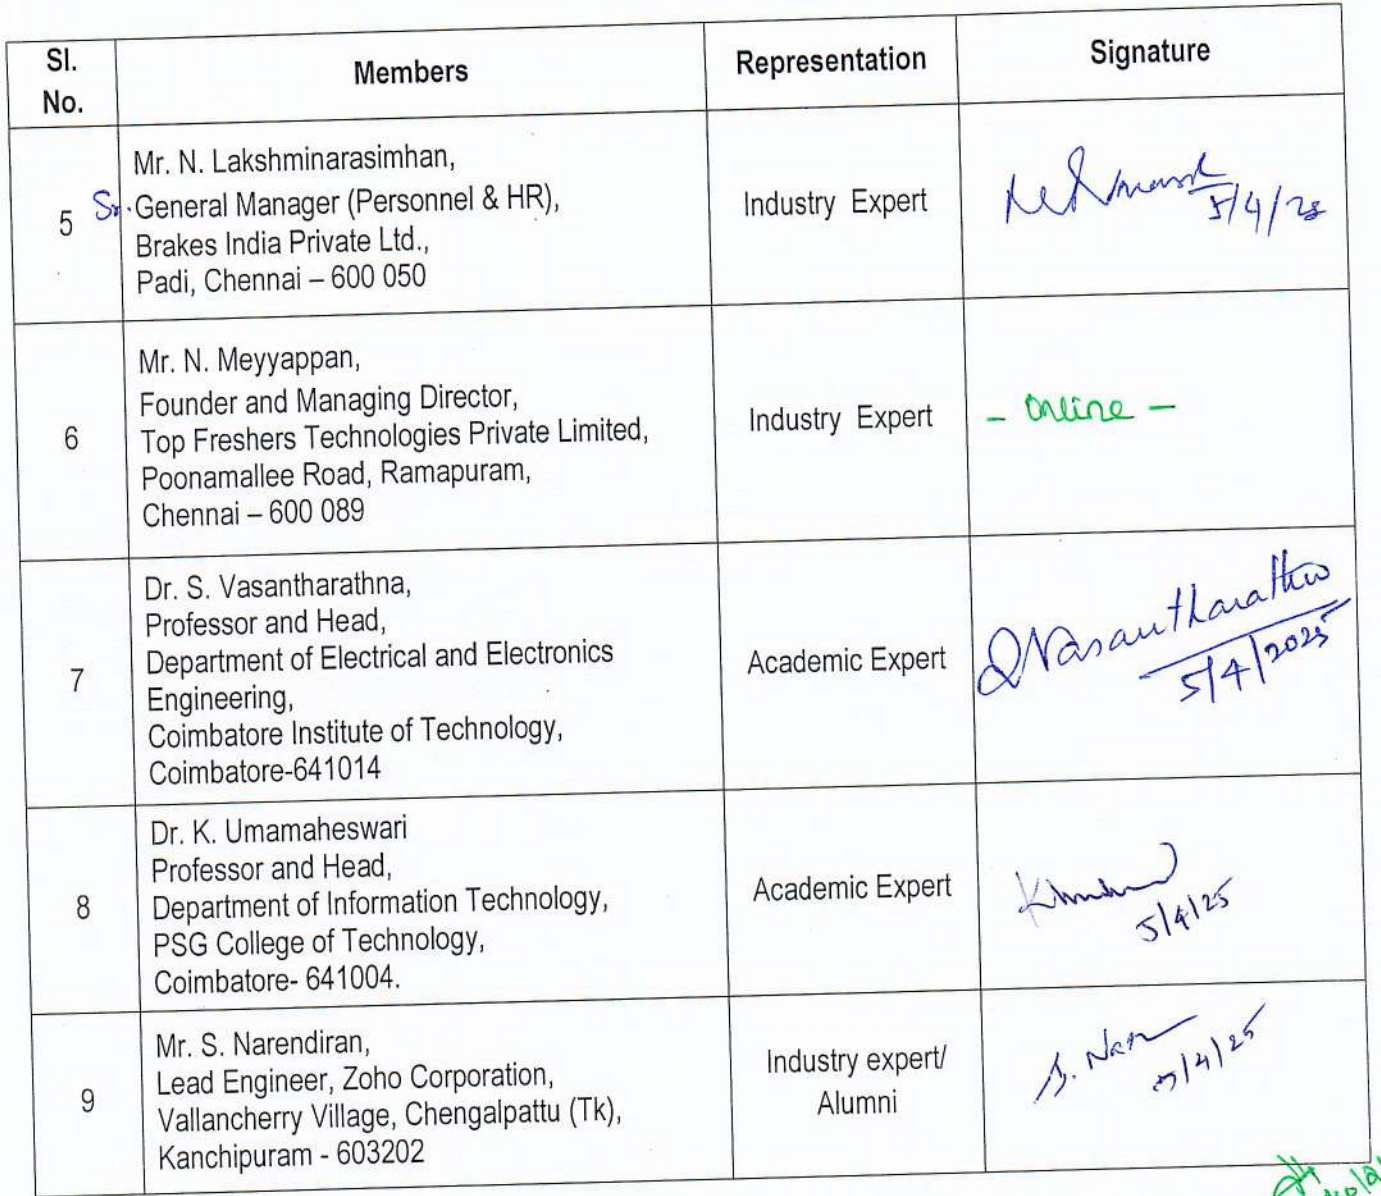 Sl. No.
Members
Representation
Signature
5
Mr. N. Lakshminarasimhan,
Sr. General Manager (Personnel & HR),
Brakes India Private Ltd.,
Padi, Chennai – 600 050
Industry Expert
5/4/25
6
Mr. N. Meyyappan,
Founder and Managing Director,
Top Freshers Technologies Private Limited,
Poonamallee Road, Ramapuram,
Chennai – 600 089
Industry Expert
- Online -
7
Dr. S. Vasantharathna,
Professor and Head,
Department of Electrical and Electronics
Engineering,
Coimbatore Institute of Technology,
Coimbatore-641014
Academic Expert
5/4/2025
8
Dr. K. Umamaheswari
Professor and Head,
Department of Information Technology,
PSG College of Technology,
Coimbatore- 641004.
Academic Expert
5/4/25
9
Mr. S. Narendiran,
Lead Engineer, Zoho Corporation,
Vallancherry Village, Chengalpattu (Tk),
Kanchipuram - 603202
Industry expert/
Alumni
5/4/25